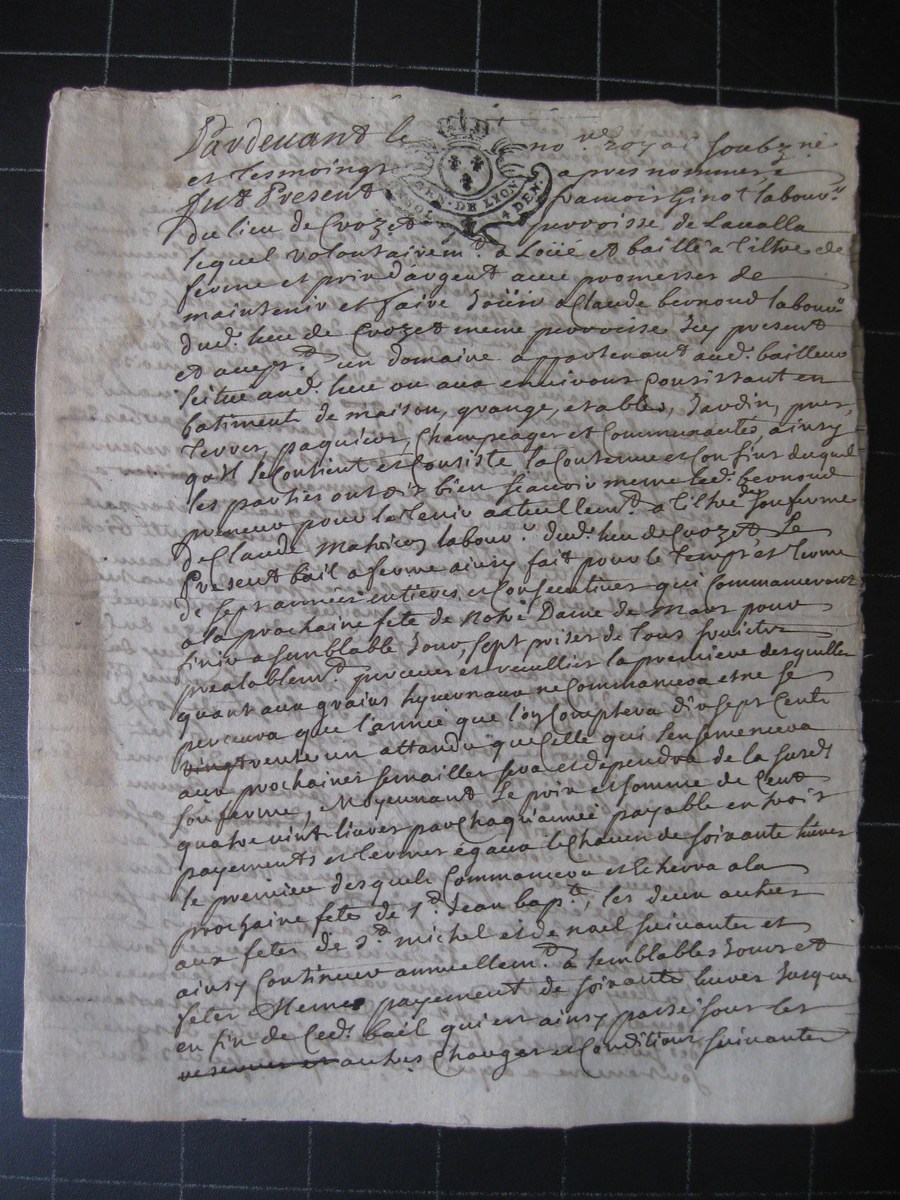 Pardevant le no.re royal soubzné
et tesmoings apres nommés
fut Present francois Ginot labour.r
GEN. DE LYON
4 DEN
du lieu de Crozet parroisse de Lavalla
lequel volontairem.t a Loüé et baillé a tiltre de
ferme et prix d'argent avec promesses de
maintenir et faire Joüir a Claude bernoud labour.r
dud. lieu de Crozet meme parroisse Icy present
et accep.t un domaine appartenant aud. bailleur
scitue aud. lieu ou aux environs Consistant en
batiment de maison, grange, etables, Jardin, prez,
Terres, paquiers, Champeages et Communautés, ainsy
qu'il se Contient et Consiste la Contenue et Confins duquel
les parties ont dit bien scavoir meme led. bernoud
preneur pour le tenir actuellem.t a tiltre de sousferme
de Claude labour.r dud. lieu de Crozet, Le
Present bail a ferme ainsy fait pour le temps et terme
de sept années entieres et Consecutives qui Commanceront
a la prochaine fete de Notre Dame de Mars pour
finir a semblable Jour, sept prises de tous fruicts
prealablem.t perceues et recueillies la premiere desquelles
quant aux grains hyvernaux ne Commancera et ne se
percevra que l'année que l'on Comptera dixsept Cent
vingt trente un attandu que Celle qui s'ensemencera
aux prochaines semailles sera et dependra de la susd.
sousferme, Moyennant le prix et somme de Cent
quatre vint livres par Chaqu'année payable en trois
payements et termes egaux le Chacun de soixante livres
le premier desquels Commancera et echerra a la
prochaine fete de S.t Jean bap.te, les deux autres
aux fetes de S.t michel et de noel suivantes et
ainsy Continuer annuellem.t a semblables Jours et
fetes Memes payement de soixante livres Jusques
en fin de Ced. bail qui est ainsy passé sous les
reserves et autres Charges et Conditions suivantes